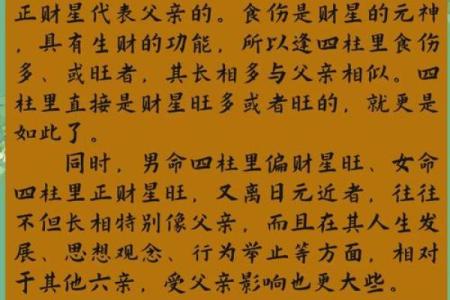 正财星代表父亲的。食伤是财星的元神
，具有生财的功能，所以逢四柱里食伤
多、或旺者，其长相多与父亲相似。四
柱里直接是财星旺多或者旺的，就更是
如此了。
同时，男命四柱里偏财星旺、女命
四柱里正财星旺，又离日元近者，往往
不但长相特别像父亲，而且在其人生发
展、思想观念、行为举止等方面，相对
于其他六亲，受父亲影响也更大些。